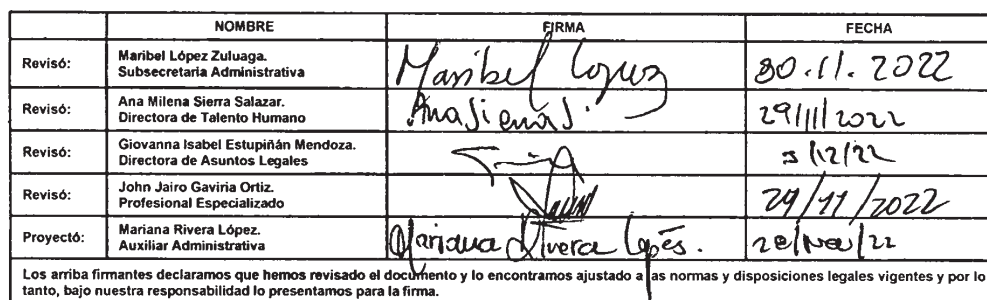 NOMBRE FIRMA FECHA
Revisó: Maribel López Zuluaga.
Subsecretaria Administrativa Maribel López 30.11.2022
Revisó: Ana Milena Sierra Salazar.
Directora de Talento Humano AnaSierraS. 29/11/2022
Revisó: Giovanna Isabel Estupiñán Mendoza.
Directora de Asuntos Legales /12/22
Revisó: John Jairo Gaviria Ortiz.
Profesional Especializado 29/11/2022
Proyectó: Mariana Rivera López.
Auxiliar Administrativa Mariana Rivera López. 28/Nov/22
Los arriba firmantes declaramos que hemos revisado el documento y lo encontramos ajustado a las normas y disposiciones legales vigentes y por lo
tanto, bajo nuestra responsabilidad lo presentamos para la firma.